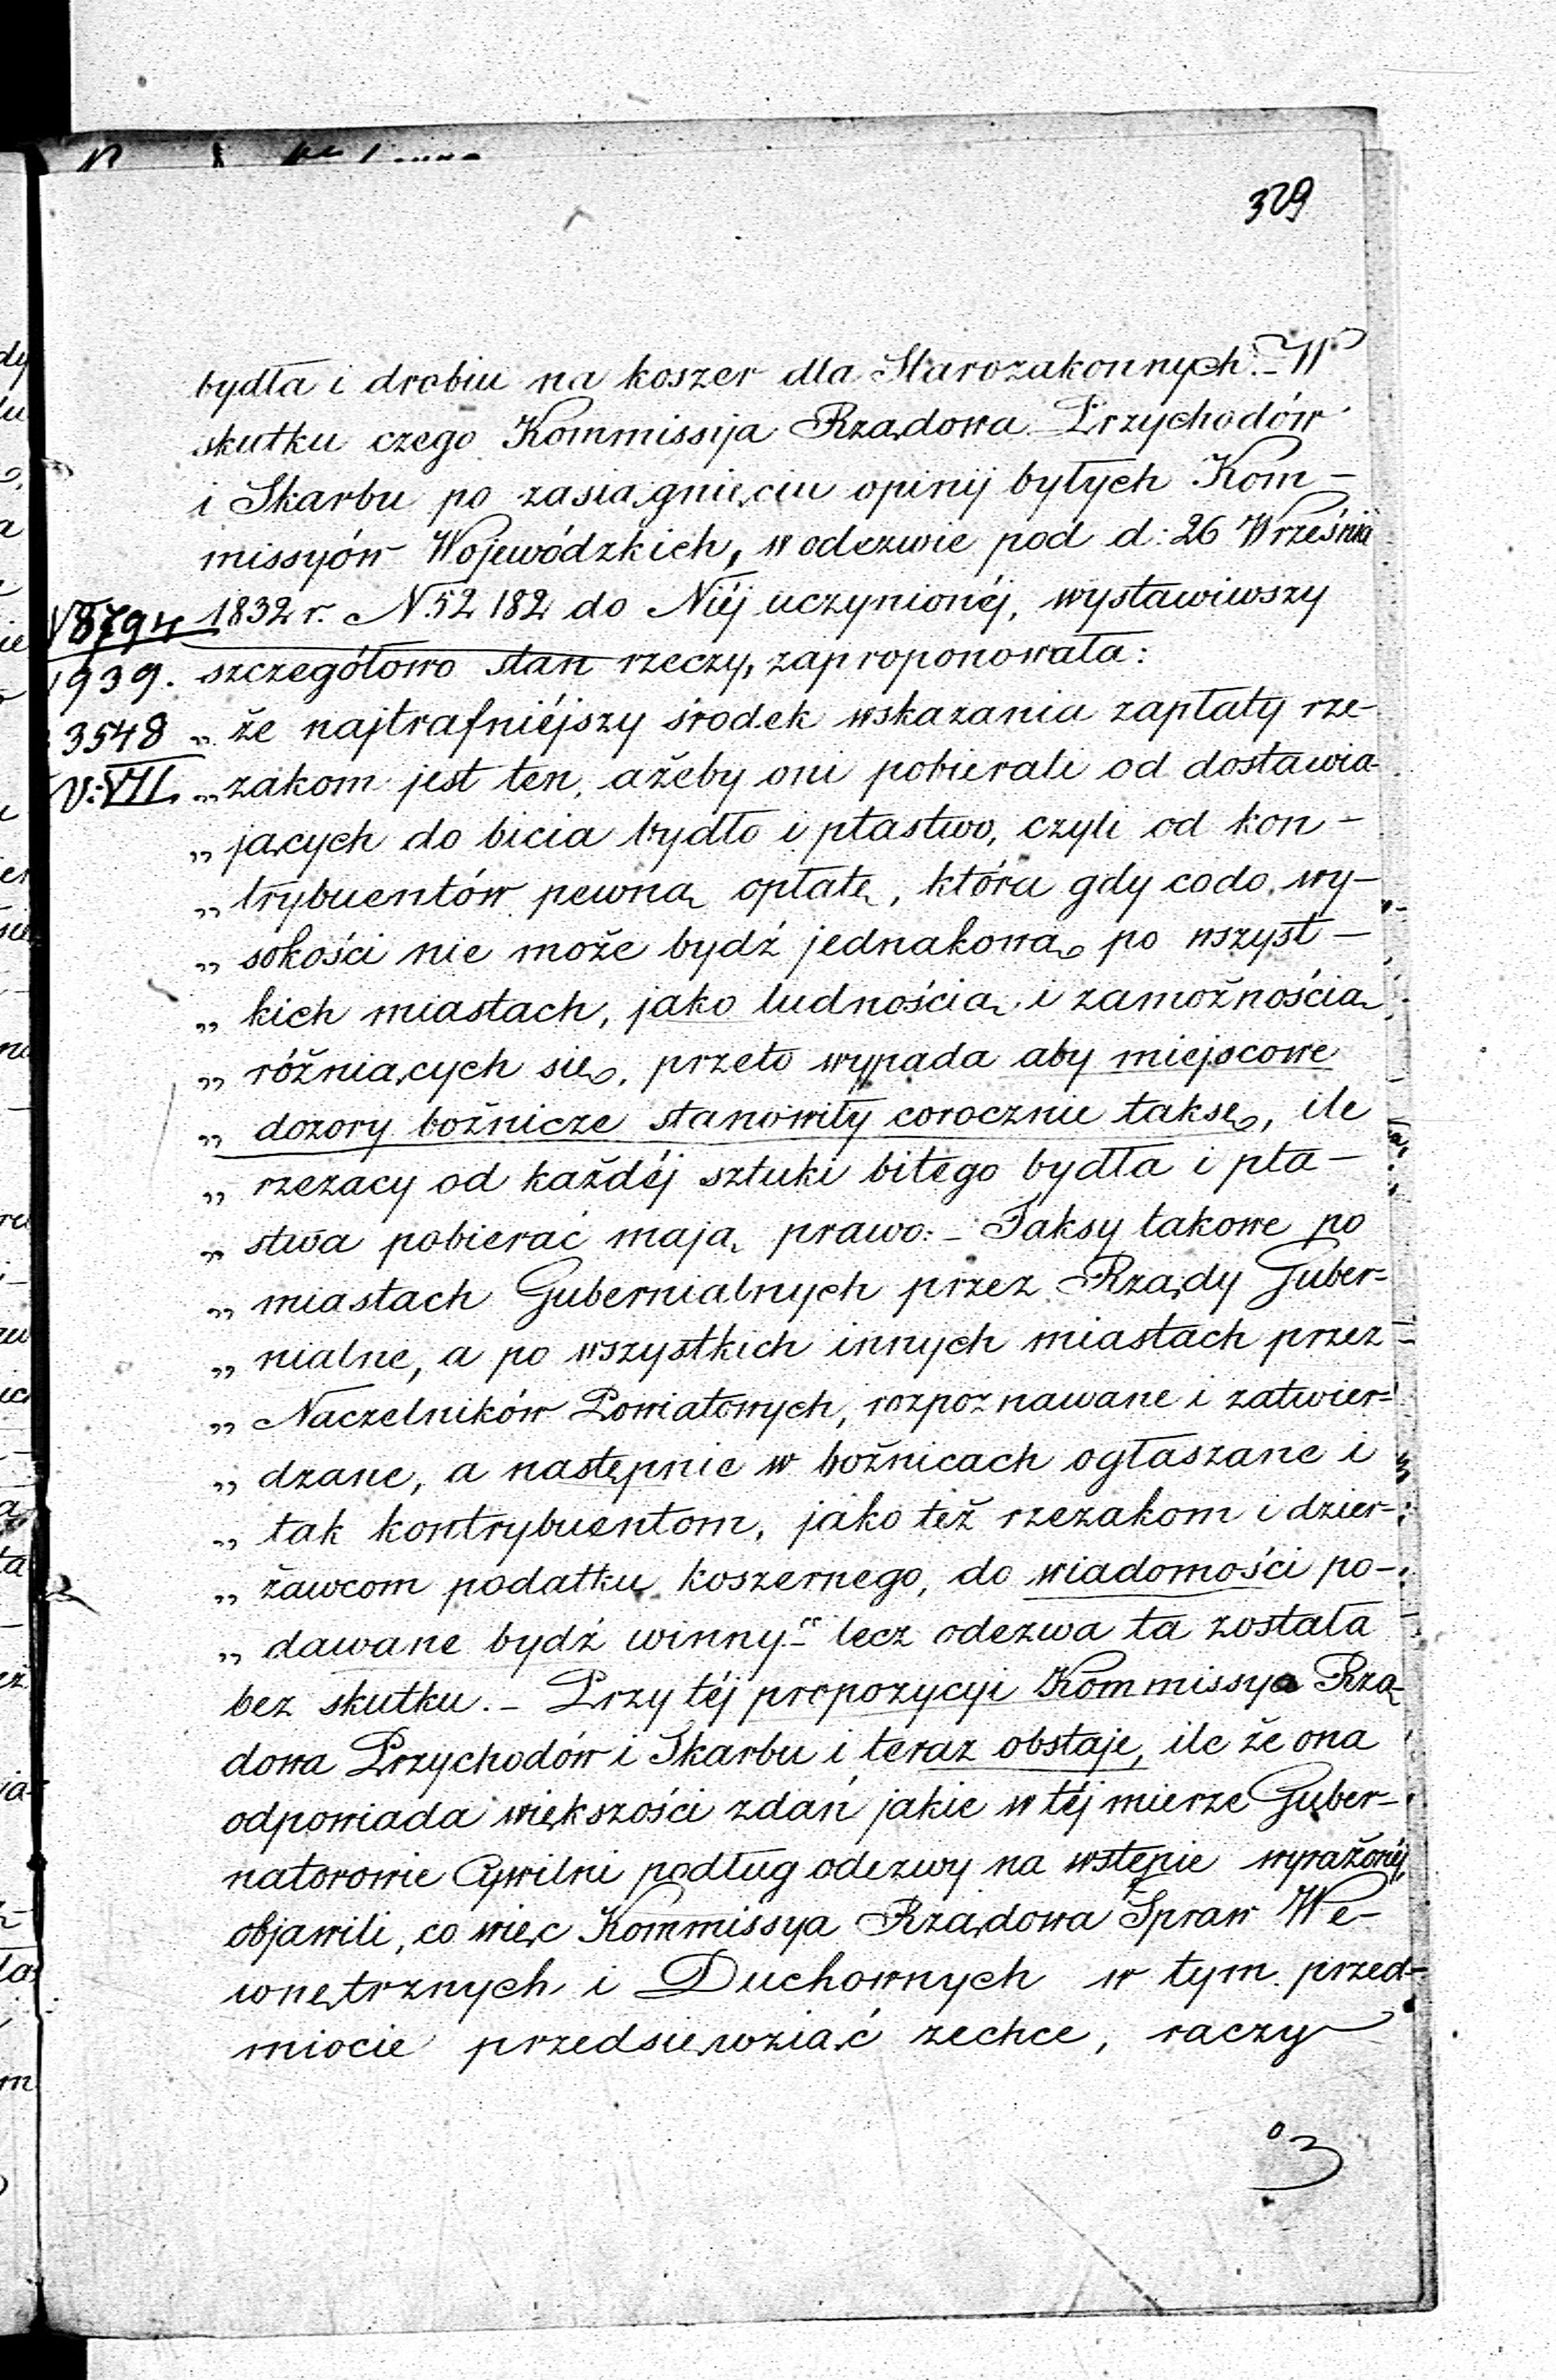 329
bydła i drobiu na koszer dla Starozakonnych.- W
skutku czego Kommissija Rządowa Przychodów
i Skarbu po zasiągnięciu opinij byłych Kom-
missyów Wojewódzkich, w odezwie pod d: 26 Września
1832 r. N. 52182 do Niéj uczynionéj, wystawiwszy
szczegółowo stan rzeczy, zaproponowała:
8794
1939.
3548
V: VII.
„ że najtrafniéjszy środek wskazania zapłaty rze-
„ zakom jest ten, ażeby oni pobierali od dostawia-
„ jących do bicia bydło i ptastwo, czyli od kon-
„ trybuentów pewną opłatę, która gdy co do wy-
„ sokości nie może bydź jednakową po wszyst-
„ kich miastach, jako ludnością i zamożnością
„ różniących się, przeto wypada aby miejscowe
„ dozory bożnicze stanowiły corocznie taksę, ile
„ rzezacy od każdéj sztuki bitego bydła i pta-
„ stwa pobierać mają prawo:- Taksy takowe po
„ miastach Gubernialnych przez Rządy Guber=
„ nialne, a po wszystkich innych miastach przez
„ Naczelników Powiatowych, rozpoznawane i zatwier=
„ dzane, a następnie w bożnicach ogłaszane i
„ tak kontrybuentom, jako też rzezakom i dzier-
„ żawcom podatku koszernego, do wiadomości po-
„ dawane bydź winny.-" lecz odezwa ta została
bez skutku.- Przy téj propozycyi Kommissya Rzą-
dowa Przychodów i Skarbu i teraz obstaje, ile że ona
odpowiada większości zdań jakie w téj mierze Guber-
natorowie Cywilni podług odezwy na wstępie wyrażonéj,
objawili, co więc Kommissya Rządowa Spraw We-
wnętrznych i Duchownych w tym przed-
miocie przedsięwziąć zechce, raczy